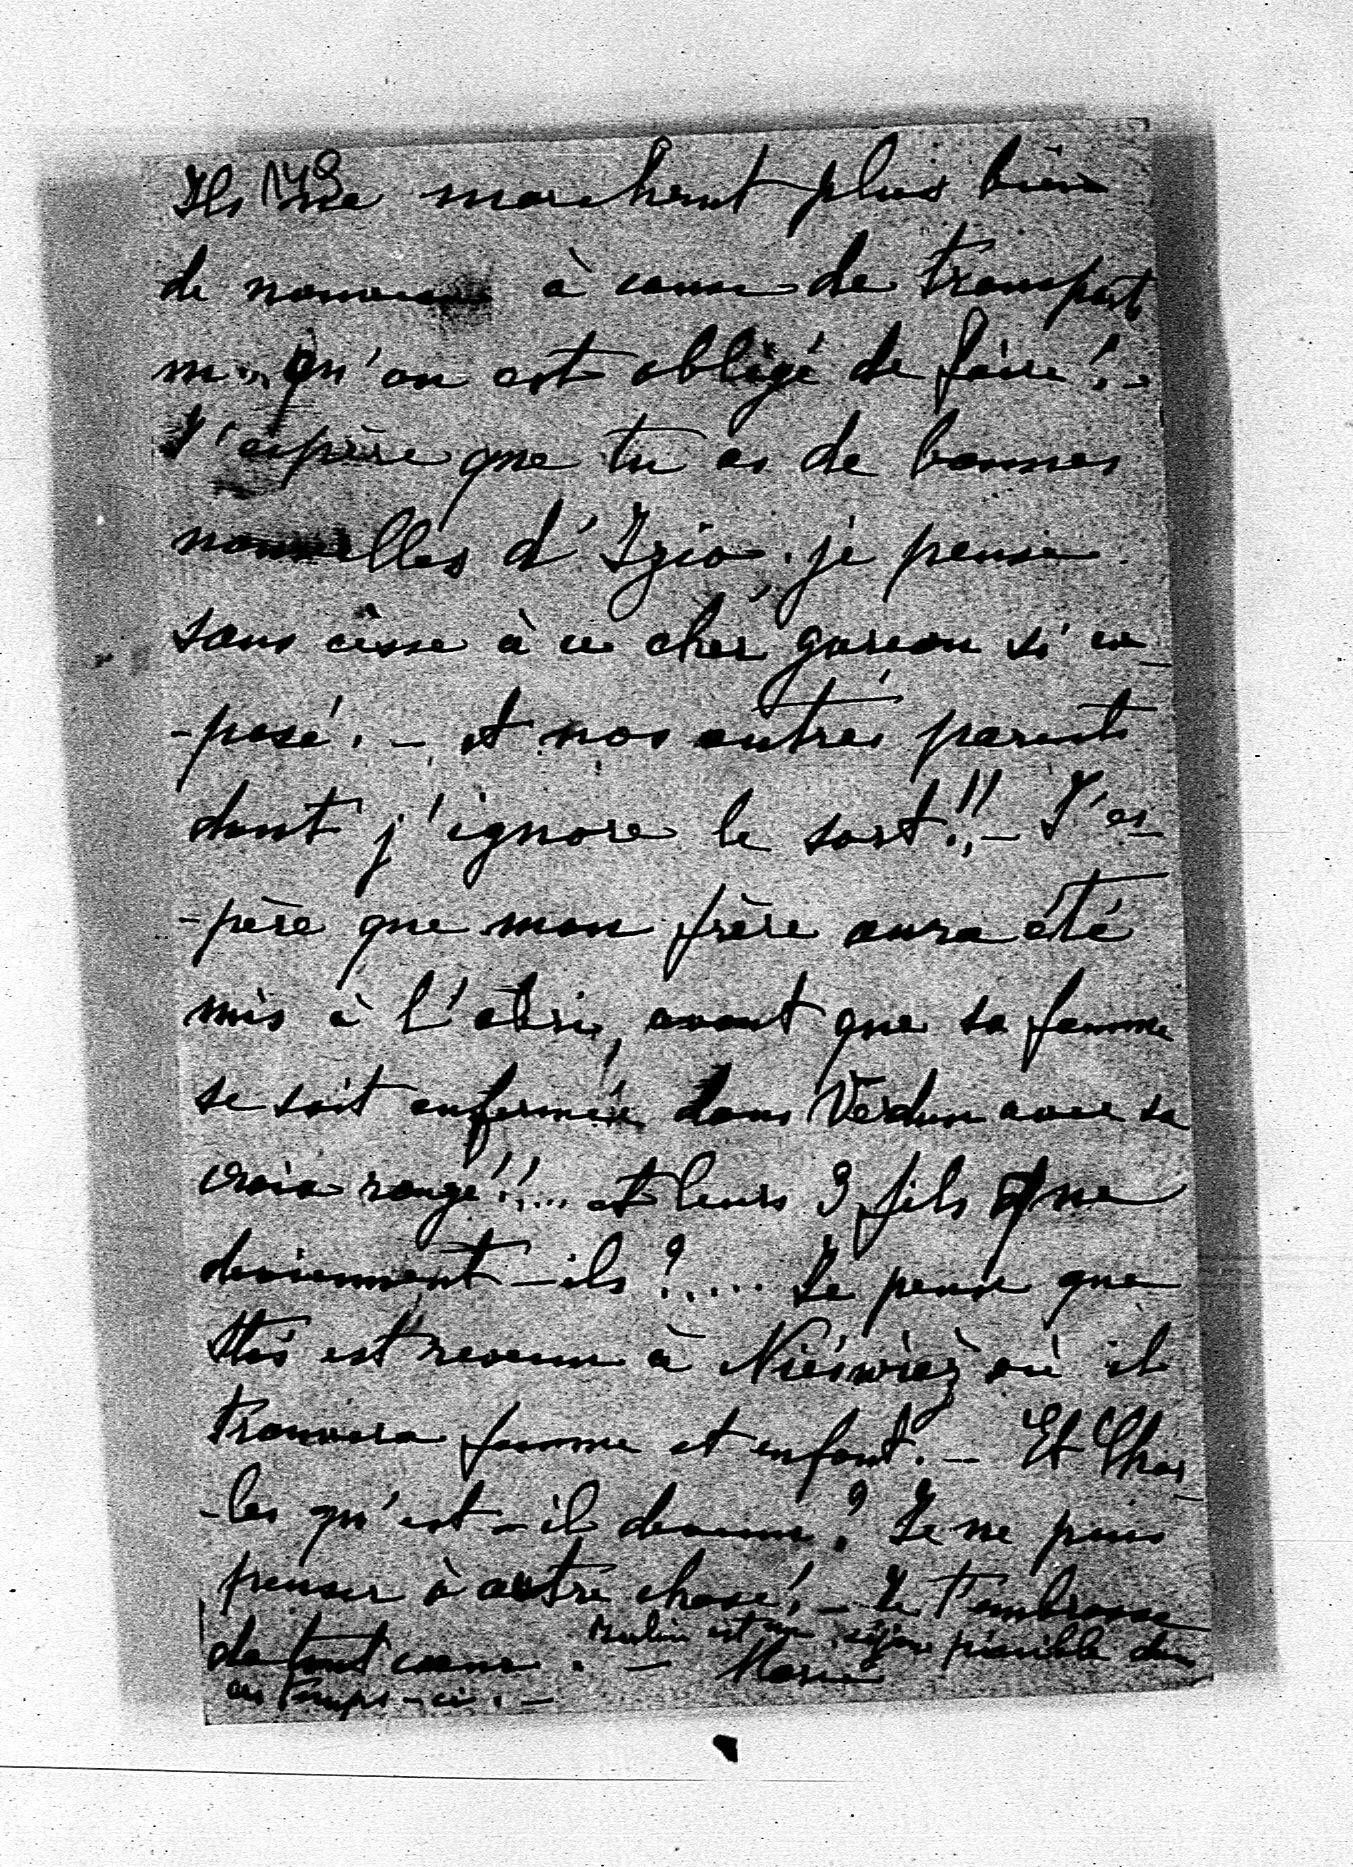 Ils ne marchent plus bien
de nouveau à cause de transport
qu'on est obligé de faire! -
J'espère que tu as de bonnes
nouvelles d'Izio. je pense
sans cesse à ce cher garcon si ex-
-posé. - et nos autres parents
dont j'ignore le sort!! - J'es-
-père que mon frère aura été
mis à l'abri, avant que sa femme
se soit enfermée dans Verdun avec sa
croix rouge!!... et leurs 3 fils que
deviennent-ils?.... Je pense que
est revenu à Nieśwież où il
trouvera femme et enfant. - Et Char-
-les qu'est-il devenu? Je ne puis
penser à autre chose! - Je t'embrasse
de tout coeur. - Marie
Berlin est un séjour pénible dans
ces temps-ci. -